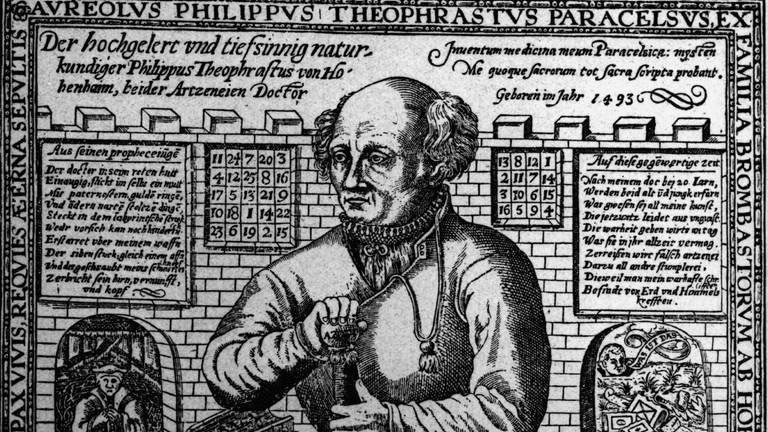 AVREOLVS PHILIPPVS THEOPHRASTVS PARACELSVS, EX
FAMILIA BROMBASTORVM AB HO
PAX VIVIS, REQVIES ÆTERNA SEPVLTIS
Der hochgelert vnd tiefsinnig natur-
kundiger Philippus Theophrastus von Ho-
henhaim, beider Artzeneien Doctor
Inventum medicina meum Paracelsica: mysten
Me quoque sacrorum tot sacra scripta probant.
Geboren im Jahr 1493
Aus seinen propheceiungē
Der doctor in seim roten hutt
Einaugig, stickt in selbs ein mutt
Mit paternostern, guldē ringē,
Steckt in dem labirintische
Wedr vorsich kan noch hindersich
Erstarret vber meinem waffn
Der sihen stuck gleich einem affn
Zerbricht sein hirn, vernunfft,
vnd kopf.
11 24 7 20 3
4 12 25 8 16
17 5 13 21 9
10 18 1 14 22
23 6 19 2 15
13 8 12 1
2 11 7 14
3 10 6 15
16 5 9 4
Auf diese gegēwertige zeit
Nach meinem dot bei 20 Iarn,
Werden beid alt vnd jung erfarn
Was gwesen sej all meine kunst.
Die jetzuntz leidet aus vngunst.
Die warheit geben wirt an tag
Was sie in ihr allzeit vermag.
Zerreissen wirt falsch artzenei
Darzu all andre stumplerei,
Dieweil man mein warhafte
Befindt von Erd vnd Himmels
kreffton.
WAS IST DAS